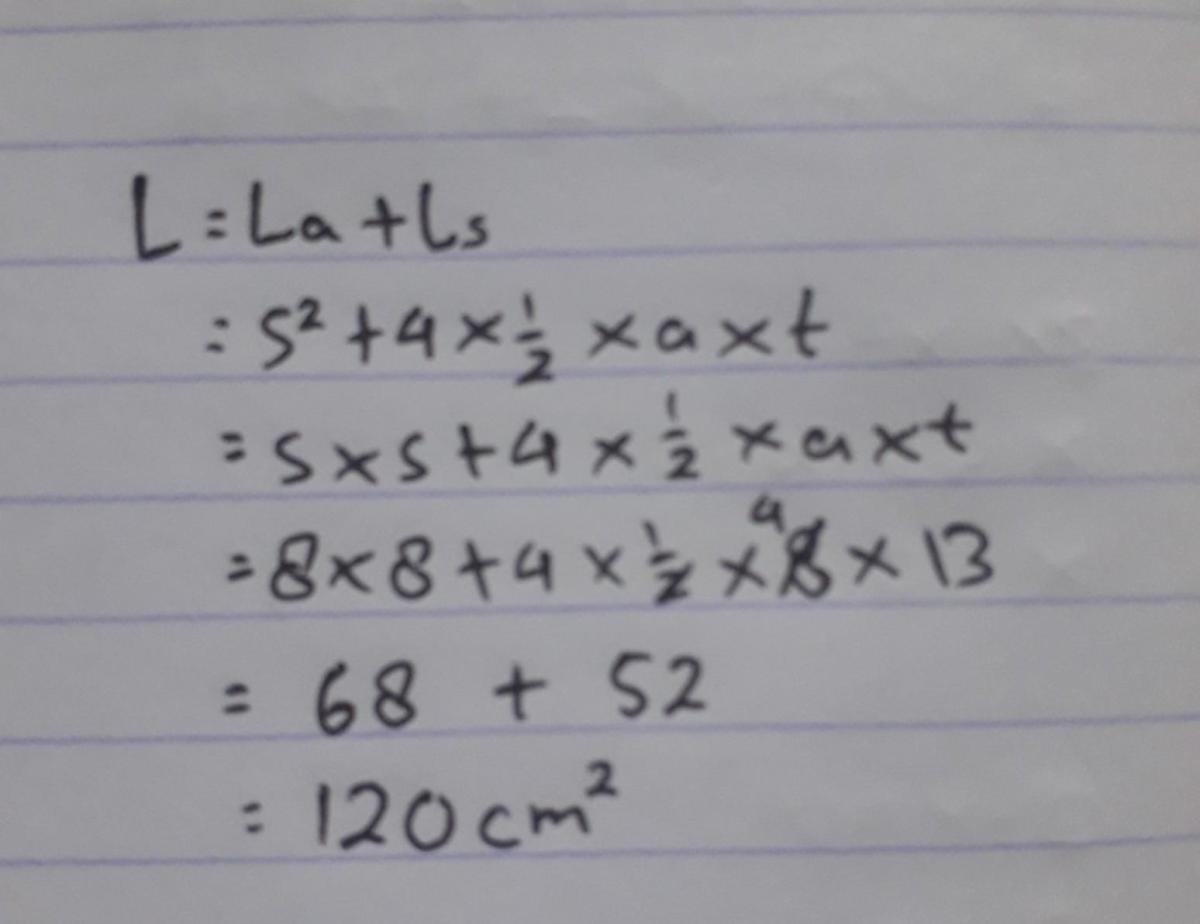 L = La + Ls
= s² + 4 × 1/2 × a × t
= s × s + 4 × 1/2 × a × t
= 8 × 8 + 4 × 1/2 × 8 4 × 13
= 68 + 52
= 120 cm²